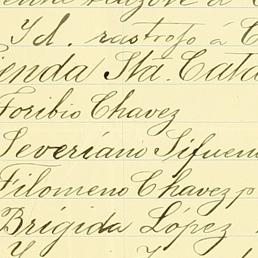 Yd. rastrojo á
ienda Sta. Cata
Toribio Chavez
Severiano Sifuen
Filomeno Chavez p
Brigida López